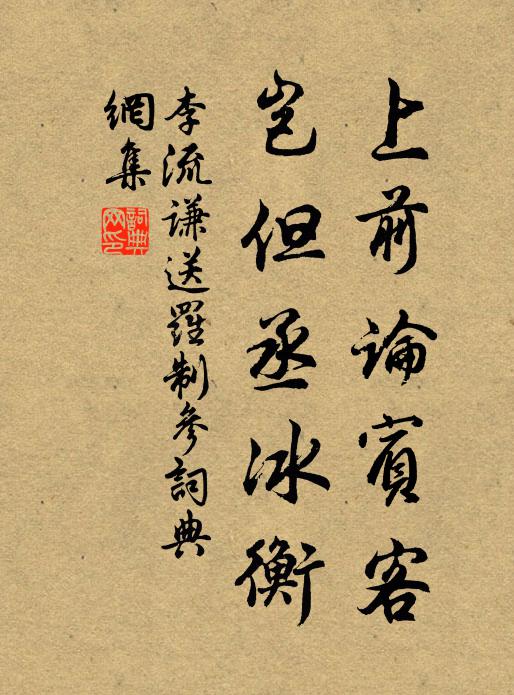 上前論賓客
豈但丞冰衡
李流謙送羅制參詞典
網集
詞典
网印